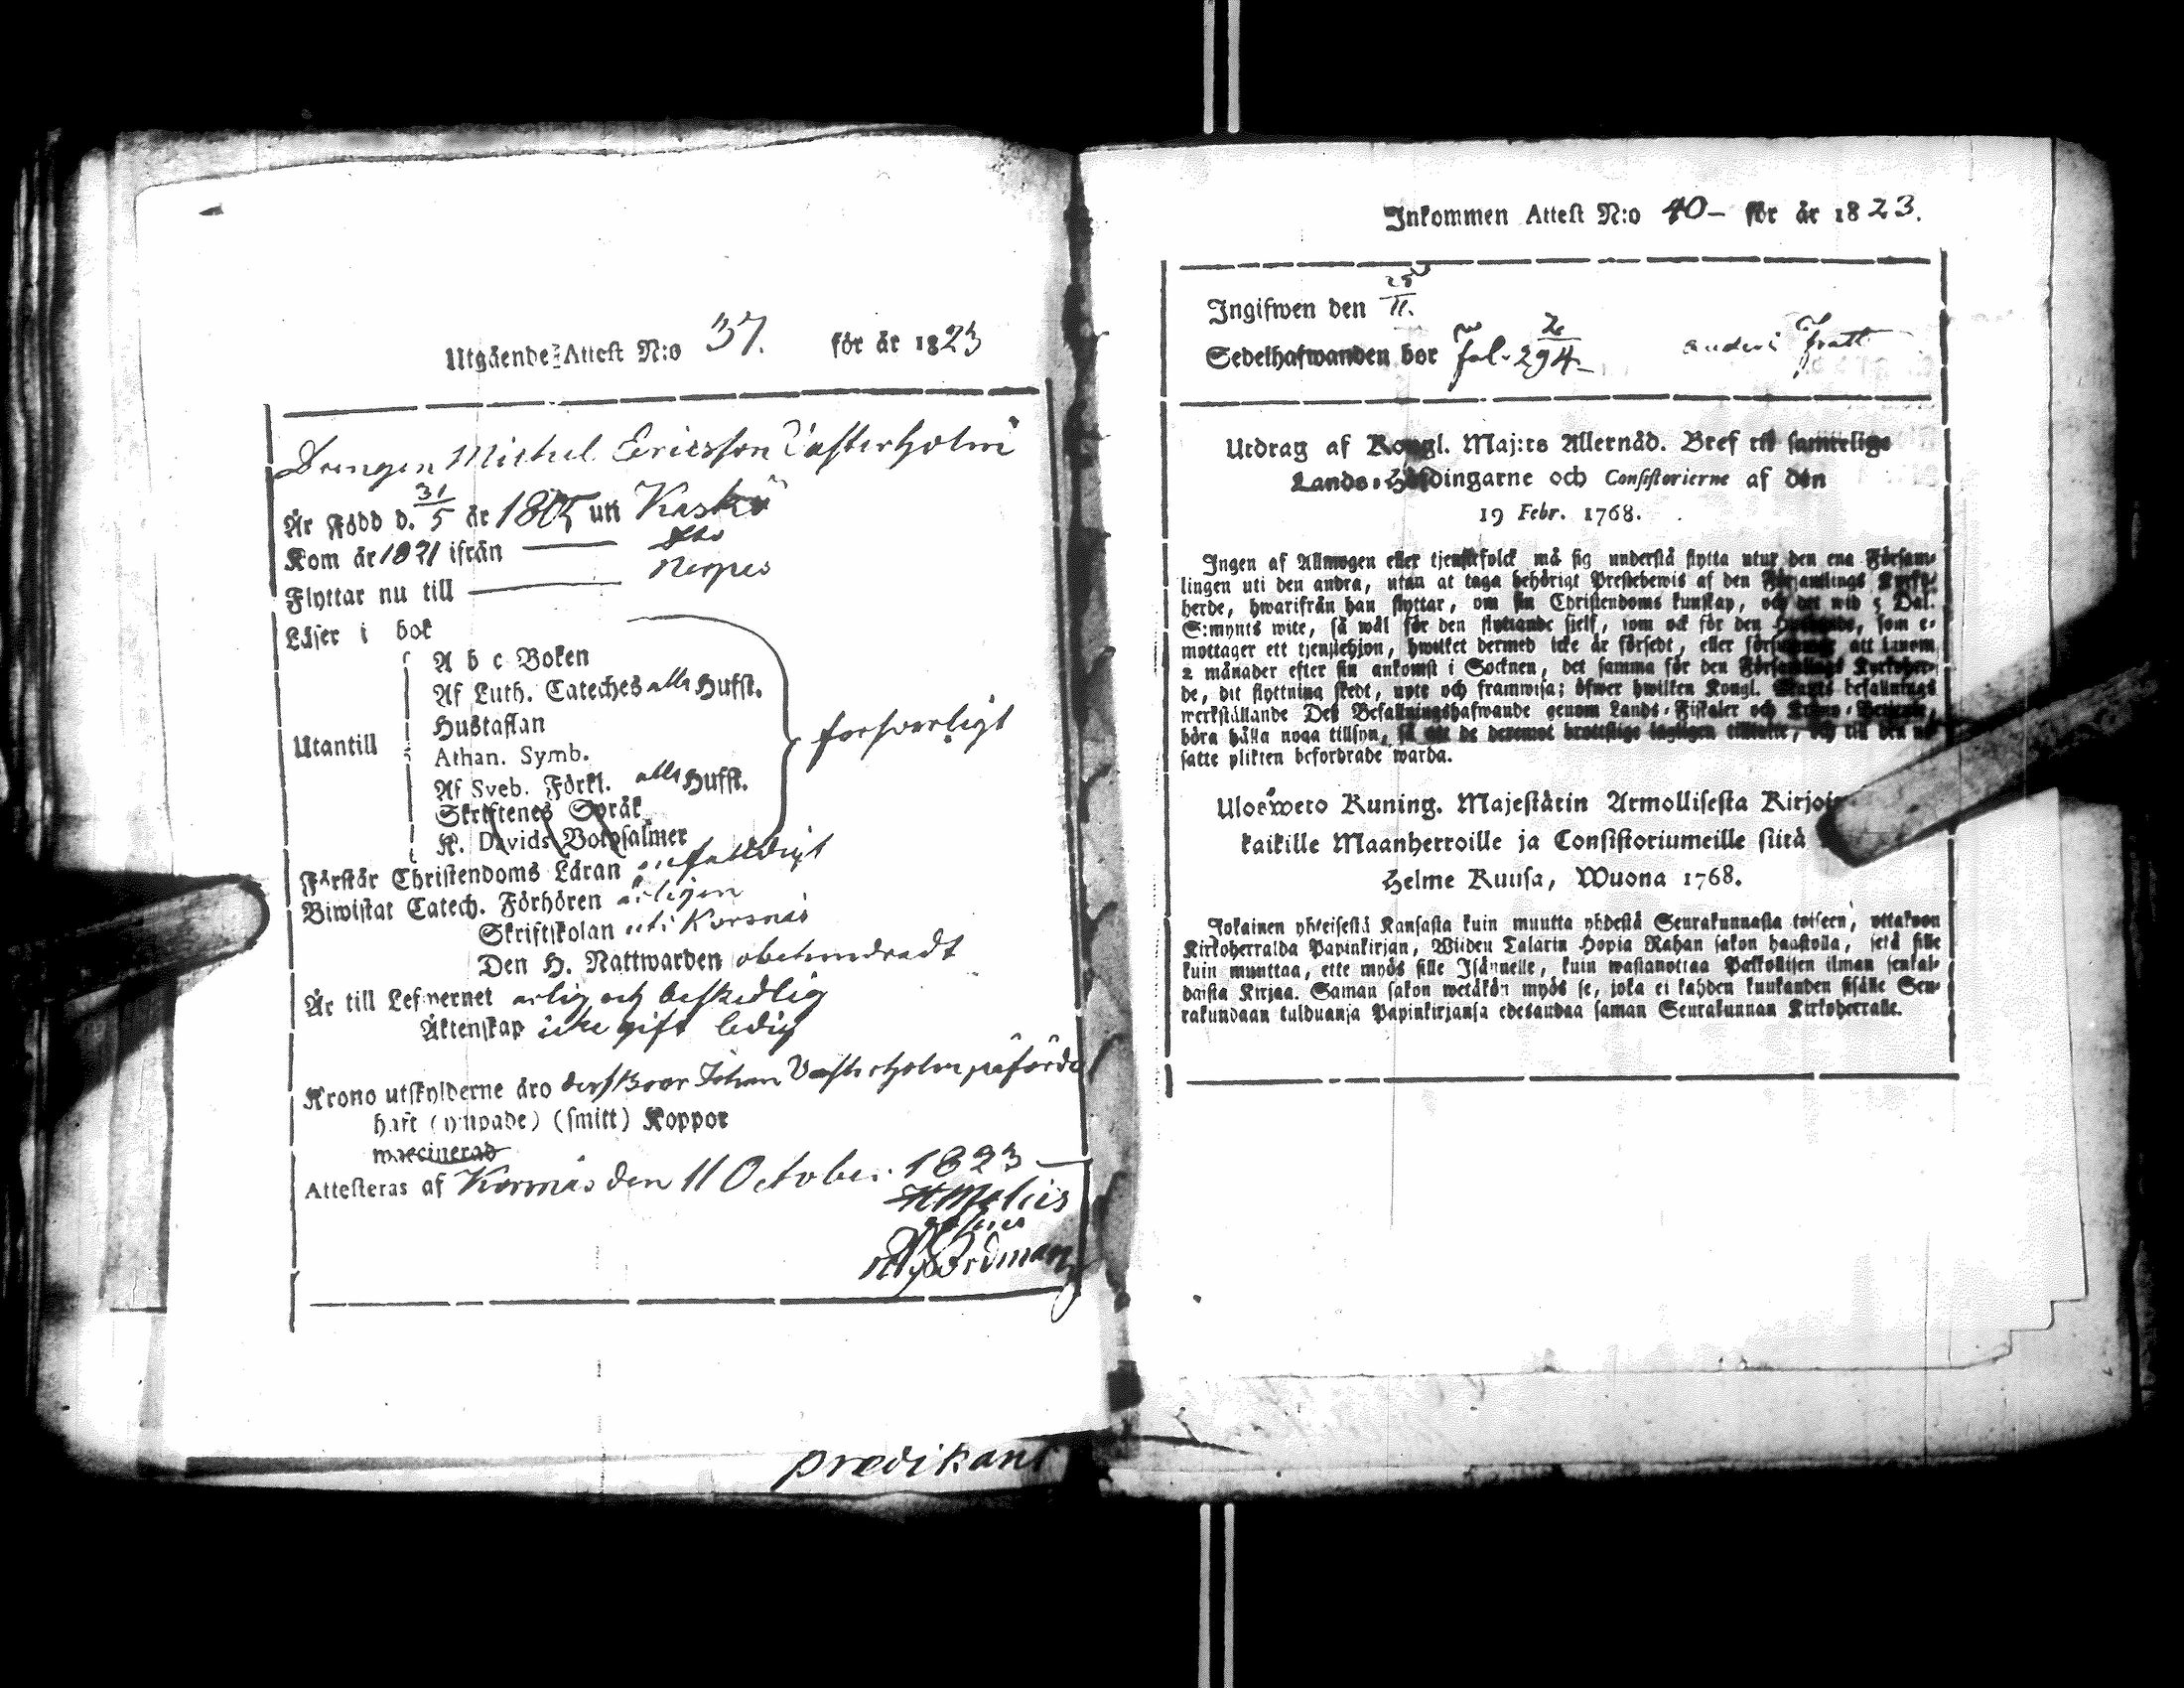 Utgående Attest N:o 37. för år 1823
Drengen Michel Ericsson Vasterholm
Är Född d. 31/5 år 1805 uti Kaskö
Kom år 1821 ifrån — dto
Flyttar nu till — Nerpes
Läser i bok
A b c Boken
Af Luth. Cateches alla Hufst.
Hustaflan
Utantill
Athan. Symb. försvarligt
Af Sveb. Förkl. alla Hufst.
Skriftenes Språk
K. Davids Botpsalmer
Förstår Christendoms Läran enfaldigt
Biwistat Catech. Förhören årligen
Skriftskolan uti Korsnäs
Den H. Nattwarden obehindradt
Är till Lefwernet ärlig och beskedlig
Äktenskap icke gift ledig
Krono utskylderne äro Johan Vasterholm påförde
haft (ympade) (smitt) Koppor
waccinerad
Attesteras af Korsnäs den 11 October 1823
predikant
Inkommen Attest N:o 40 – för år 1823.
Ingifwen den 25/11.
Sedelhafwanden bor fol. 294
Utdrag af Kongl. Maj:ts Allernåd. Bref till samtelige
Lands-Höfdingarne och Consistorierne af den
19 Febr. 1768.
Ingen af Allmogen eller tjenstefolck må sig understå flytta utur den ena Försam-
lingen uti den andra, utan at taga behörigt Prestebewis af den Församlings Kyrko-
herde, hwarifrån han flyttar, om sin Christendoms kunskap, och det wid 5 Dal.
S:mynts wite, så wäl för den flyttande sjelf, som ock för den Husbonde, som e-
mottager ett tjenstehjon, hwilket dermed icke är försedt, eller försummar att innom
2 månader efter sin ankomst i Socknen, det samma för den Församlings Kyrkoher-
de, dit flyttning skedt, upte och framwisa; öfwer hwilken Kongl. Maj:ts befallnings
werkställande Des Befallningshafwande genom Lands-Fiskaler och Krono-Betjente,
böra hålla noga tillsyn, så att de deremot brottslige lagligen tilltalte, och till den ut-
satte plikten befordrade warda.
Ulosweto Kuning. Majestätin Armollisesta Kirjoi
kaikille Maanherroille ja Consistoriumeille siitä
Helme Kuusa, Wuona 1768.
Jokainen yhteisestä Kansasta kuin muutta yhdestä Seurakunnasta toiseen, ottakoon
Kirkoherralda Papinkirjan, Wiiden Talarin Hopia Rahan sakon haastolla, setä sille
kuin muuttaa, ette myös sille Isännelle, kuin wastanottaa Palkollisen ilman senkal-
daista Kirjaa. Saman sakon wetäkön myös se, joka ei kahden kuukauden sisälle Seu-
rakundaan tulduansa Papinkirjansa edesandaa saman Seurakunnan Kirkoherralle.